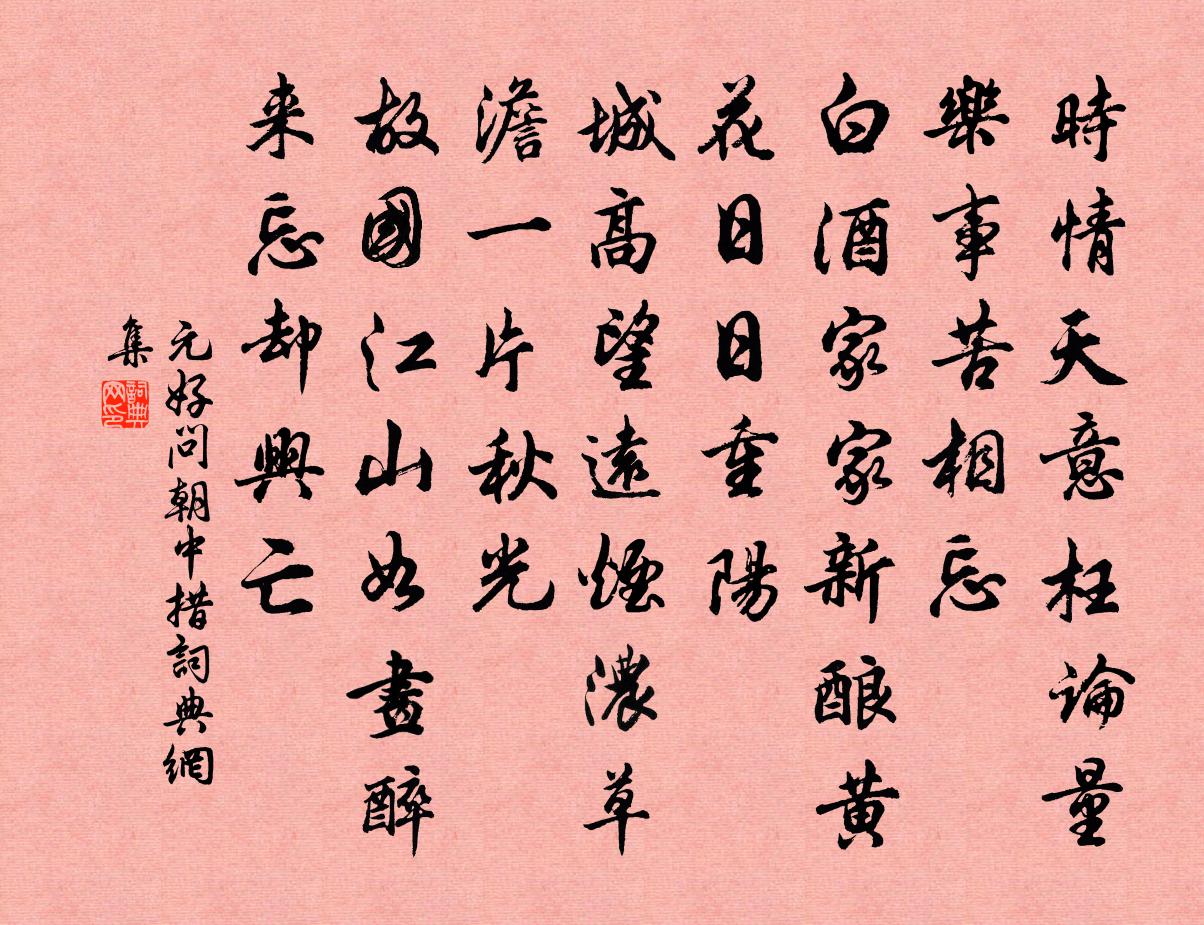 時情天意枉論量
樂事苦相忘
白酒家家新酿黄
花日日重陽
城高望遠煙濃草
澹一片秋光
故國江山如畫醉
来忘却興亡
元好问朝中措詞典網
集
詞典
网印